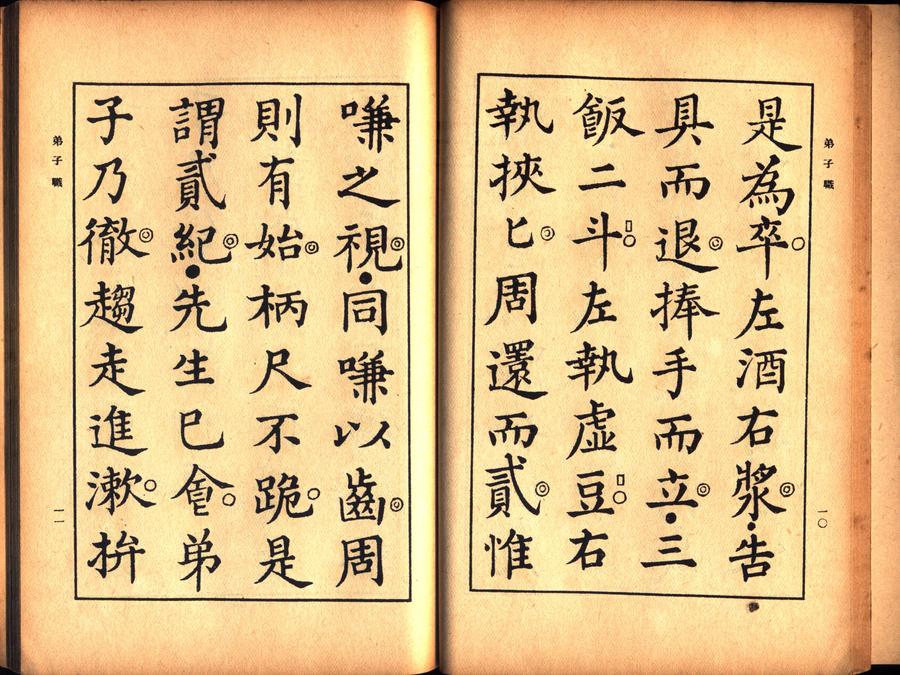 弟子職
一〇
是為卒左酒右漿告
具而退捧手而立三
飯二斗左執虛豆右
執挾匕周還而貳惟
嗛之視同嗛以齒周
則有始柄尺不跪是
謂貳紀先生已食弟
子乃徹趨走進漱拚
弟子職
一一